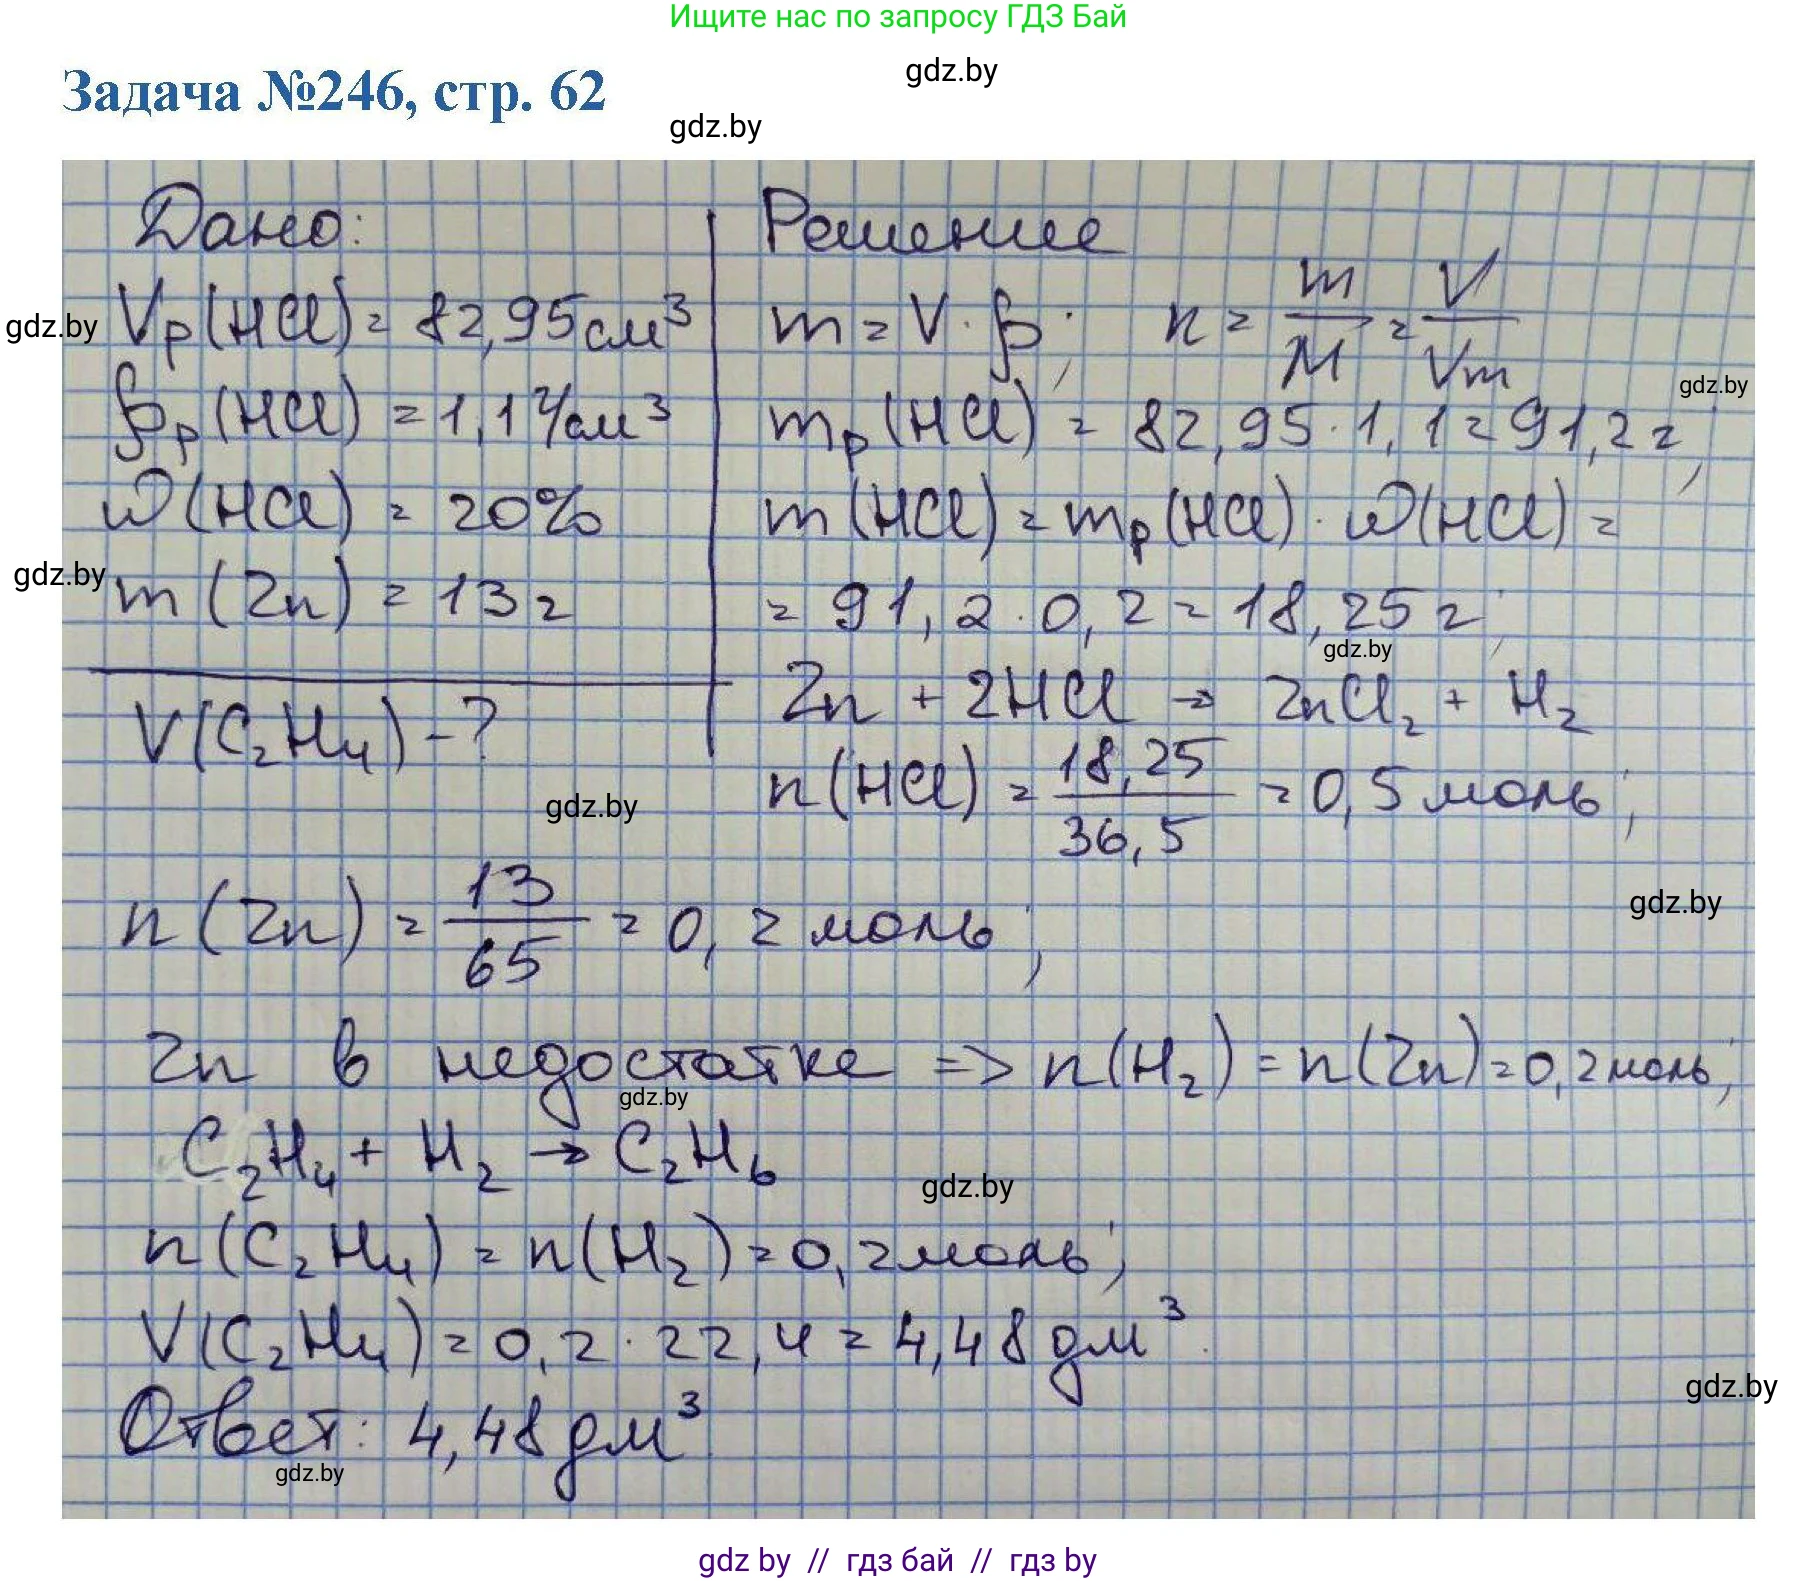 Ищите нас по запросу ГДЗ Бай
gdz.by
Задача №246, стр. 62
gdz.by
Дано:
Vр(HCl) = 82,95 см³
gdz.by
ρр(HCl) = 1,1 г/см³
ω(HCl) = 20%
gdz.by
m(Zn) = 13 г
V(C₂H₄) - ?
gdz.by
Решение
m = V · ρ; n = m/M = V/Vm
gdz.by
mр(HCl) = 82,95 · 1,1 = 91,2 г;
m(HCl) = mр(HCl) · ω(HCl) =
= 91,2 · 0,2 = 18,25 г;
gdz.by
Zn + 2HCl → ZnCl₂ + H₂
n(HCl) = 18,25/36,5 = 0,5 моль;
n(Zn) = 13/65 = 0,2 моль;
gdz.by
Zn в недостатке => n(H₂) = n(Zn) = 0,2 моль;
gdz.by
C₂H₄ + H₂ → C₂H₆
gdz.by
n(C₂H₄) = n(H₂) = 0,2 моль;
V(C₂H₄) = 0,2 · 22,4 = 4,48 дм³.
gdz.by
Ответ: 4,48 дм³
gdz.by
gdz by // гдз бай // гдз by